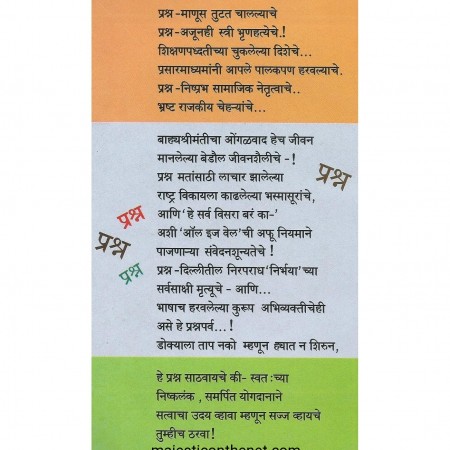 प्रश्न -माणूस तुटत चालल्याचे
प्रश्न -अजूनही स्त्री भृणहत्येचे.!
शिक्षणपध्दतीच्या चुकलेल्या दिशेचे...
प्रसारमाध्यमांनी आपले पालकपण हरवल्याचे.
प्रश्न -निष्प्रभ सामाजिक नेतृत्वाचे..
भ्रष्ट राजकीय चेहऱ्यांचे...
बाह्यश्रीमंतीचा ओंगळवाद हेच जीवन
मानलेल्या बेडौल जीवनशैलीचे -!
प्रश्न मतांसाठी लाचार झालेल्या
राष्ट्र विकायला काढलेल्या भस्मासूरांचे,
आणि 'हे सर्व विसरा बरं का-'
अशी 'ऑल इज वेल'ची अफू नियमाने
पाजणाऱ्या संवेदनशून्यतेचे !
प्रश्न -दिल्लीतील निरपराध 'निर्भया'च्या
सर्वसाक्षी मृत्यूचे - आणि...
भाषाच हरवलेल्या कुरूप अभिव्यक्तीचेही
असे हे प्रश्नपर्व...!
डोक्याला ताप नको म्हणून ह्यात न शिरुन,
प्रश्न
प्रश्न
प्रश्न
प्रश्न
हे प्रश्न साठवायचे की- स्वतःच्या
निष्कलंक , समर्पित योगदानाने
सत्वाचा उदय व्हावा म्हणून सज्ज व्हायचे
तुम्हीच ठरवा !
majesticonthenet.com